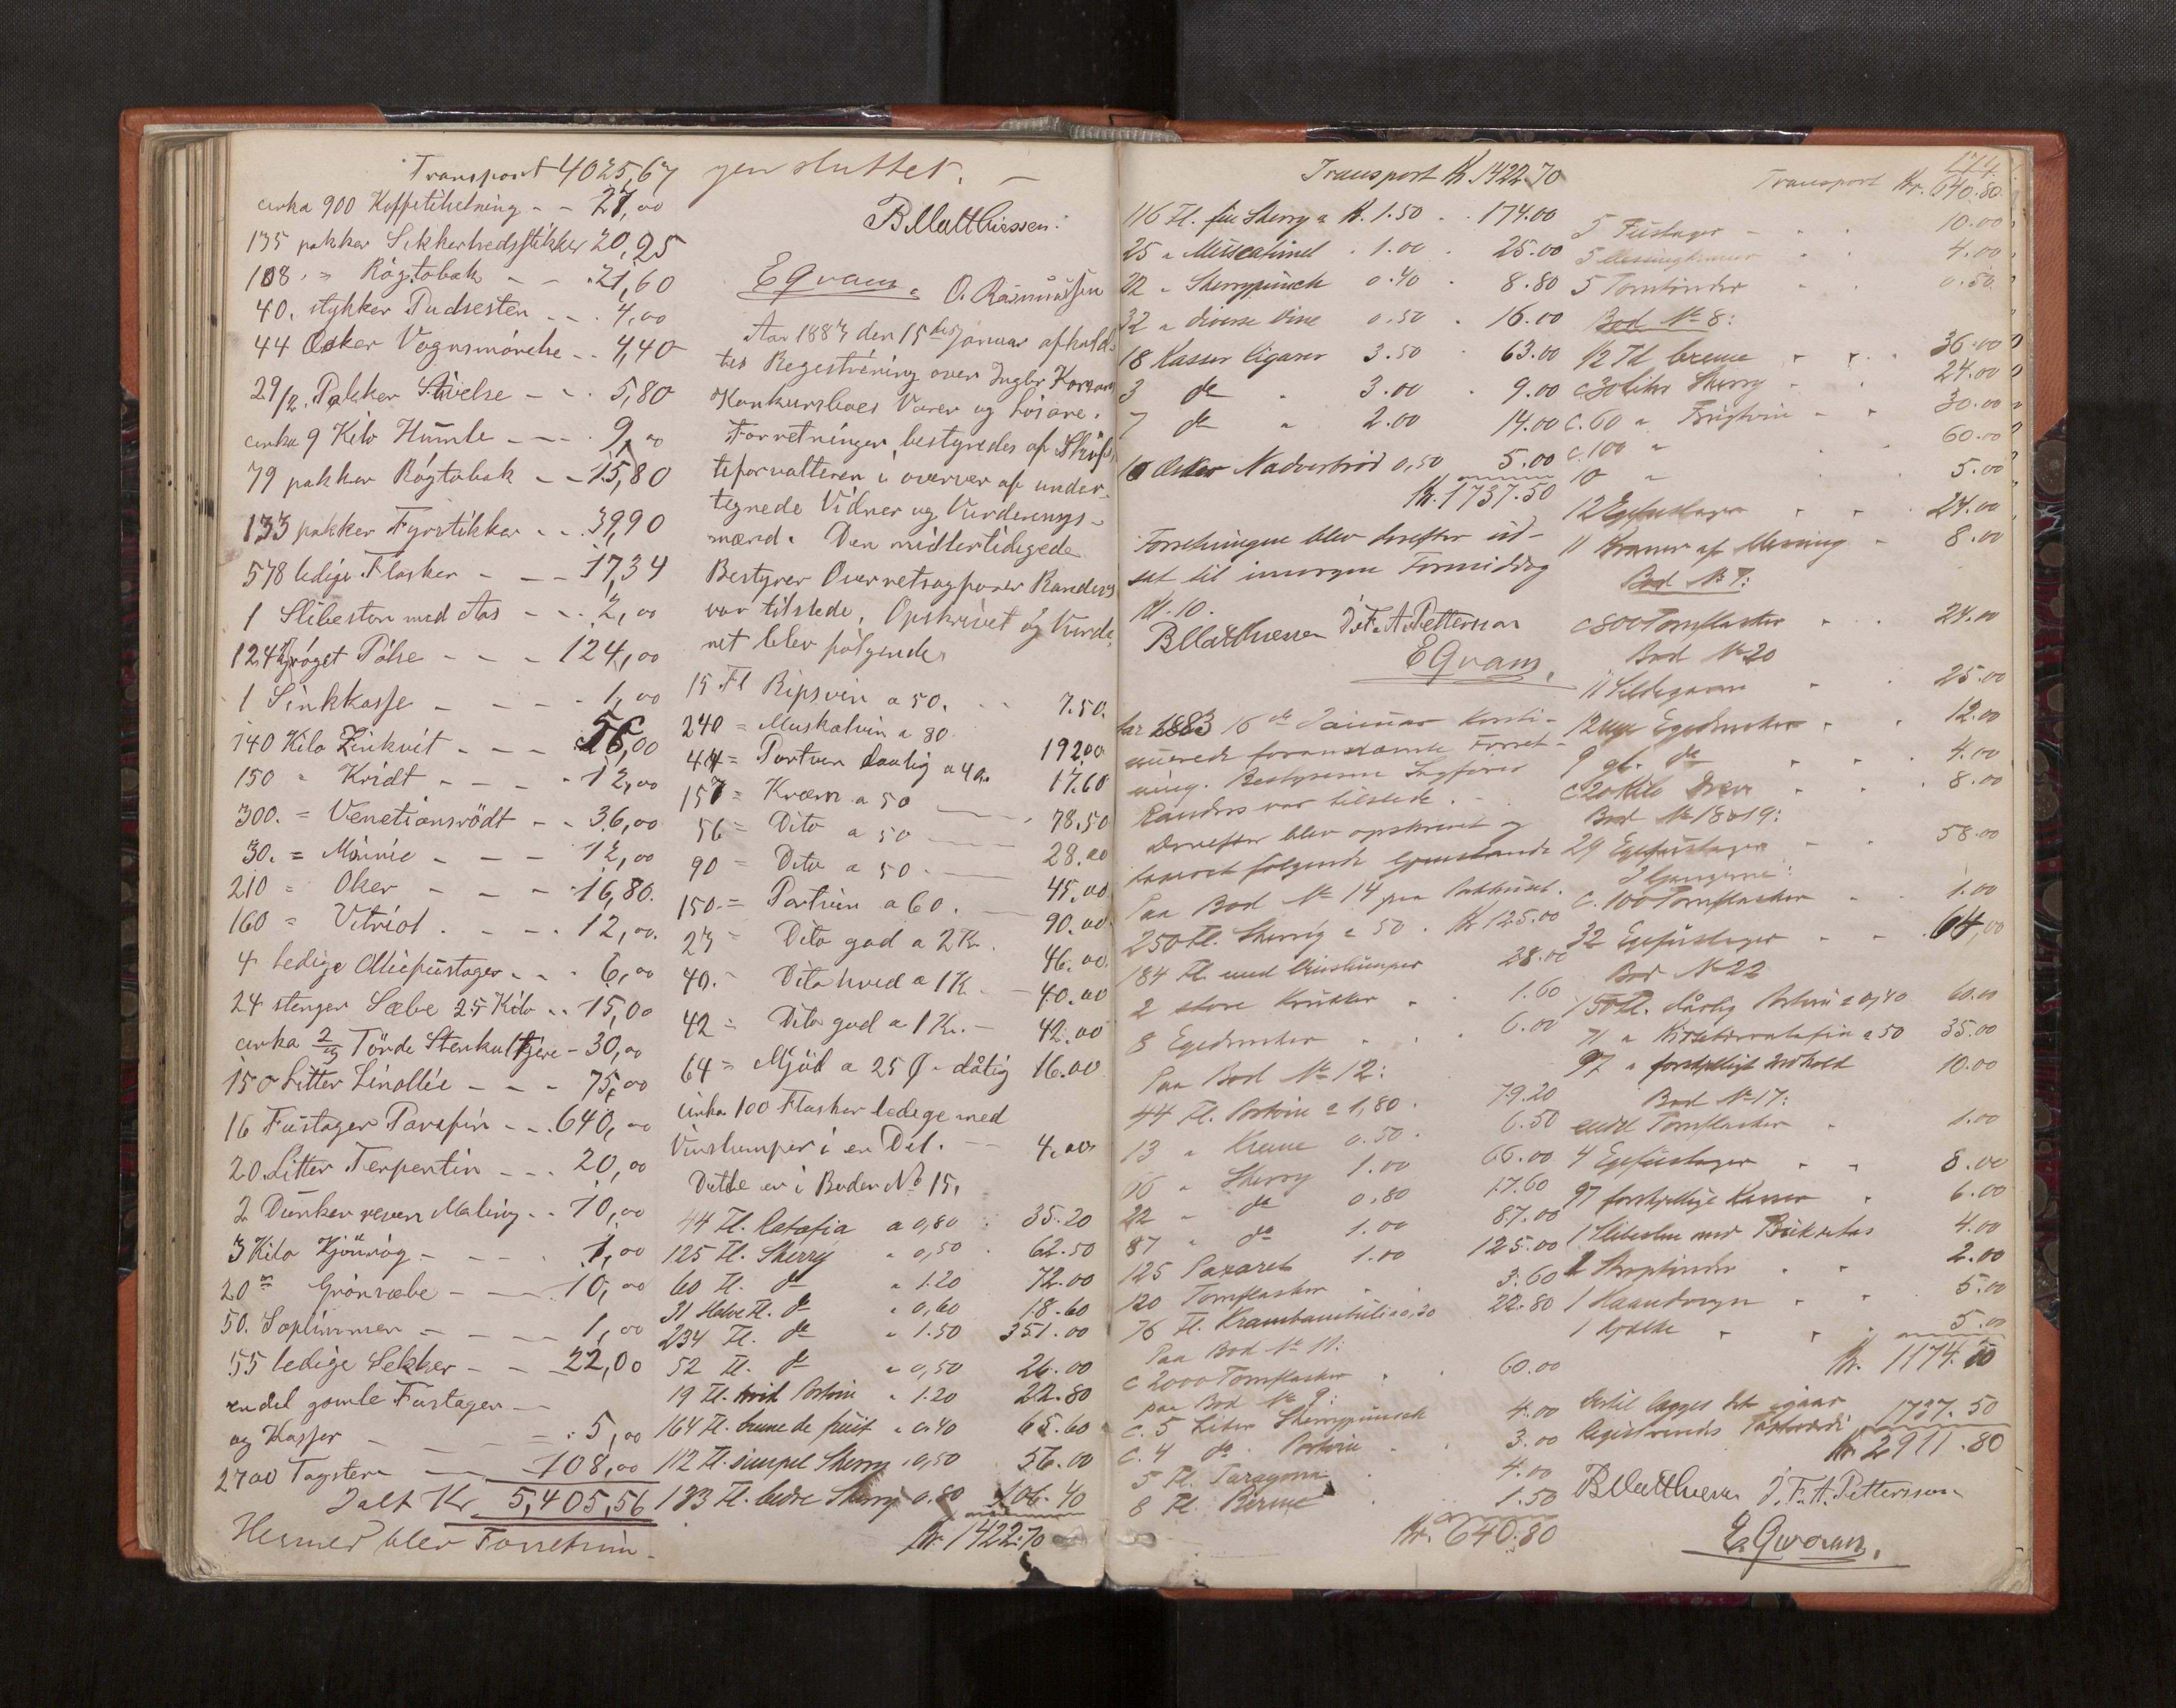 Transport 4025,67
cirka 900 Koffetilsetning - - 27,00
135 pakker Sikkerhedsstikker 20,25
108 " Rögtobak - - - 21,60
40. stykker Pudsesten - - . 4,00
44 Æsker Vognsmörelse - . 4,40
29/2. Pakker Stivelse - - . 5,80
cirka 9 Kilo Humle - - - . 9,00
79 pakker Rögtobak - - 15,80
133 pakker Fyrstikker - . 39,90
578 ledige Flasker - - - 17,34
1 Slibesten med Aas - - . 2,00
124 röget Pölse - - - 124,00
1 Sinkkasse - - - - 1,00
140 Kilo Zinkvit - - - 56,00
150 " Kridt - - - - 12,00
300. = Venetiansrödt - - 36,00
30. = Mönnie - - - 12,00
210 = Oker - - - - 16,80.
160 = Vitriol . - - - . 12,00.
4 ledige Olliefustager . - . 6,00
24 stenger Sæbe 25 Kilo . . 15,00
cirka 2/3 Tönde Stenkultjere - 30,00
150 Litter Linollie - - - 75,00
16 Fustager Parafin - - . 640,00
20. Litter Terpentin - - . 20,00
2 Dunker reven Maling . . 10,00
3 Kilo Kjönrög - - - . 1,00
20 " Grönsæbe - - 10,00
50. Loplimmer - - - - 1,00
55 ledige Sekker - - 22,00
en del gamle Fustager -
og Kasser - - - - . 5,00
2700 Tagsten - - 108,00
Ialt Kr 5,405,56
Hermed blev Forretnin-
gen sluttet. -
B Matthiessen.
E Qvam. O. Rasmussen
Aar 1883 den 15de Januar afhold-
tes Regestrering over Ingbr Korsans
Konkursboes Varer og Lösöre.
Forretningen bestyredes af Skif-
teforvalteren i overver af under-
tegnede Vidner og Vurderings-
mænd. Den midlertidigede
Bestyrer Overretsagförer Randers
var tilstede. Opskrivet og Vurde-
ret blev fölgende
15 Fl Ripsvin a 50. - - 7.50.
240 = Muskatvin a 80. 192,00
44 = Portvin daalig a 40. 17.60
157 = Kræm a 50 - 78,50
56 = Dito a 50 - 28.00
90 = Dito a 50. - 45,00
150. = Portvin a 60. - 90.00.
23 = Dito god a 2 Kr. 46.00.
40. = Dito hvid a 1 K. - 40.00
42 = Dito god a 1 Kr. - 42.00
64 = Mjöd a 25 Ø - dålig 16.00
cirka 100 Flasker ledege med
Vinslumper i en Del. - 4.00
Dette er i Boden No 15.
44 Fl. Ratafia a 0,80 : 35.20
125 Fl. Sherry " 0,50 . 62.50
60 Fl. do " 1.20 72.00
31 Halve Fl. do " 0,60 18.60
234 Fl. do " 1.50 351.00
52 Fl. do " 0,50 26.00
19 Fl. hvid Portvin " 1.20 22.80
164 Fl. creme de fruit " 0.40 65.60
112 Fl. simpel Sherry . 0,50 56.00
133 Fl. bedre Sherry 0.80 106.40
Kr. 1422.70
Transport K. 1422.70
116 Fl. fin Sherry a K. 1.50 . . 174.00
25 " Muscatinel . 1.00 . 25.00
22 " Sherrypunch 0.40 . 8.80
32 " diverse Vine 0.50 . 16.00
18 Kasser Cigarer 3.50 . 63.00
3 do " 3.00 . 9.00
7 do " 2.00 14.00
10 Æsker Nadverbröd 0,50 5.00
Kr. 1737.50
Forretningen blev derefter ud-
sat til imorgen Formiddag
Kl. 10.
B Matthiessen J. F. A. Petterson
E Qvam.
Aar 1883 16de Januar konti-
nuerede foranstaaende Forret-
ning. Bestyreren Sagförer
Randers var tilstede. -
Derefter blev opskrevet og
taxeret fölgende Gjenstande
Paa Bod No 14 paa Pakhuset.
250 Fl. Sherry a 50 . Kr 125.00
184 Fl. med Vinslumper 28.00
2 store Krukker . . 1.60
8 Egedunker . . . 6.00
Paa Bod No 12:
44 Fl. Portvin a 1,80 . 79.20
13 " Kreme 0.50 . 6.50
66 " Sherry 1.00 66.00
22 " do 0.80 17.60
87 " do 1.00 87.00
125 Paxaret 1.00 125.00
120 Tomflasker . . 3.60
76 Fl. Krambambuli a 0,30 22.80
Paa Bod No 11:
c 2000 Tomflasker . . 60.00
paa Bod No 9:
c. 5 Liter Sherrypunsch 4.00
c. 4 do. Portvin . . 3.00
5 Fl. Taragona . 4.00
8 Fl. . . 1.50
Kr. 640.80
174.
Transport Kr. 640.80
5 Fustager - . . 10.00
5 Messingkraner . . 4.00
5 Tomtönder " . 0.50
Bod No 8:
1/2 Fl Creme . . . 36.00
c 30 Liter Sherry - . 24.00
c. 60 " Frugtvin - . 30.00
c. 100 " . . 60.00
10 " 5.00
12 Egefustager . . . 24.00
11 Kraner af Messing - 8.00
Bod No 7:
c 800 Tomflasker . . . 24.00
Bod No 20
11 Sildegarn . . 25.00
12 nye Egedunker . . 12.00
9 gl. do . . . 4.00
c 20 Kilo Drev . . . 8.00
Bod No 18 o 19:
29 Egefustager . . 58.00
I Gangerne:
c. 100 Tomflasker . . 1.00
32 Egefustager - - . 64,00
Bod No 22
150 Fl. dårlig Portvin a 0,40 60.00
71 " Kirsebærratafia a 50 35.00
97 " forskjelligt Indhold 10.00
Bod No 17:
endel Tomflasker . 1.00
4 Egefustager . . 8.00
97 forskjellige Kasser . 6.00
1 Slibesten med Buk & Aas 4.00
2 . . 2.00
1 Haandvogn . . 5.00
1 Kjelke . . . 5.00
Kr. 1174.30
dertil lægges det igaar
registrerede Taxtværdi 1737.50
Kr. 2911.80
B Matthiessen J. F. A. Petterson
E. Qvam.